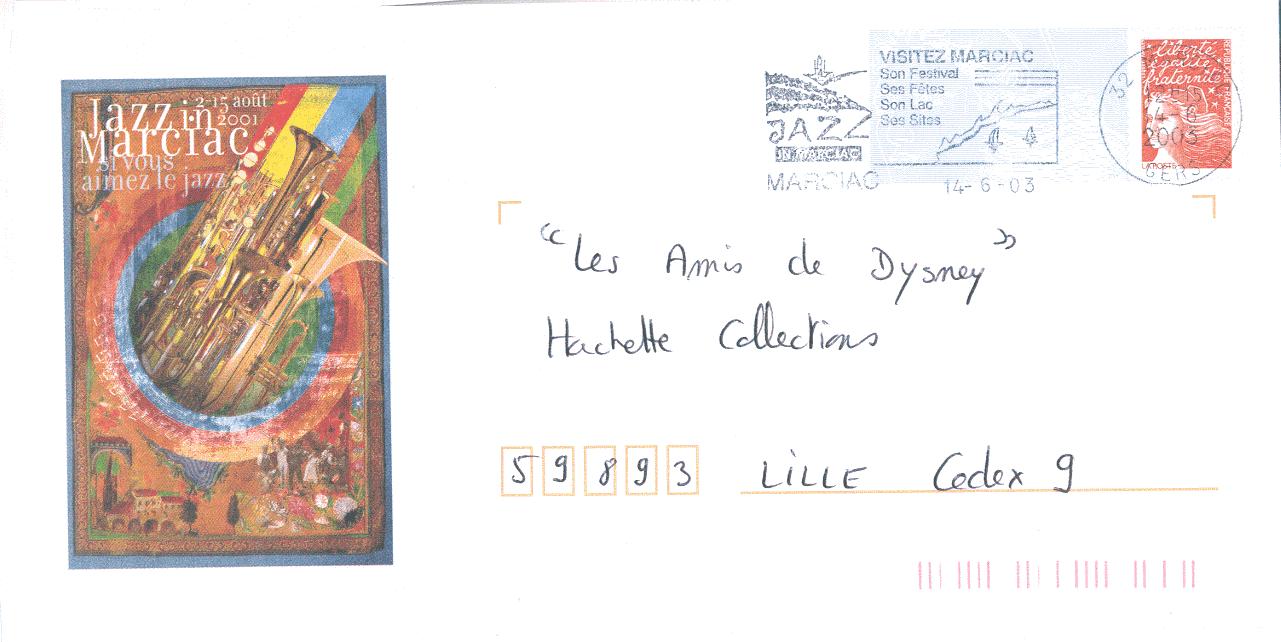 Jazz in
2-15 août
2001
Marciac
si vous
aimez le jazz
JAZZ
IN MARCIAC
MARCIAC
VISITEZ MARCIAC
Son Festival
Ses Fêtes
Son Lac
Ses Sites
14-6-03
32
14-6
2003
GERS
liberté
égalité
fraternité
REPUBLIQUE FRANÇAISE
LA POSTE
"Les Amis de Dysney"
Hachette Collections
59893 LILLE Cedex 9